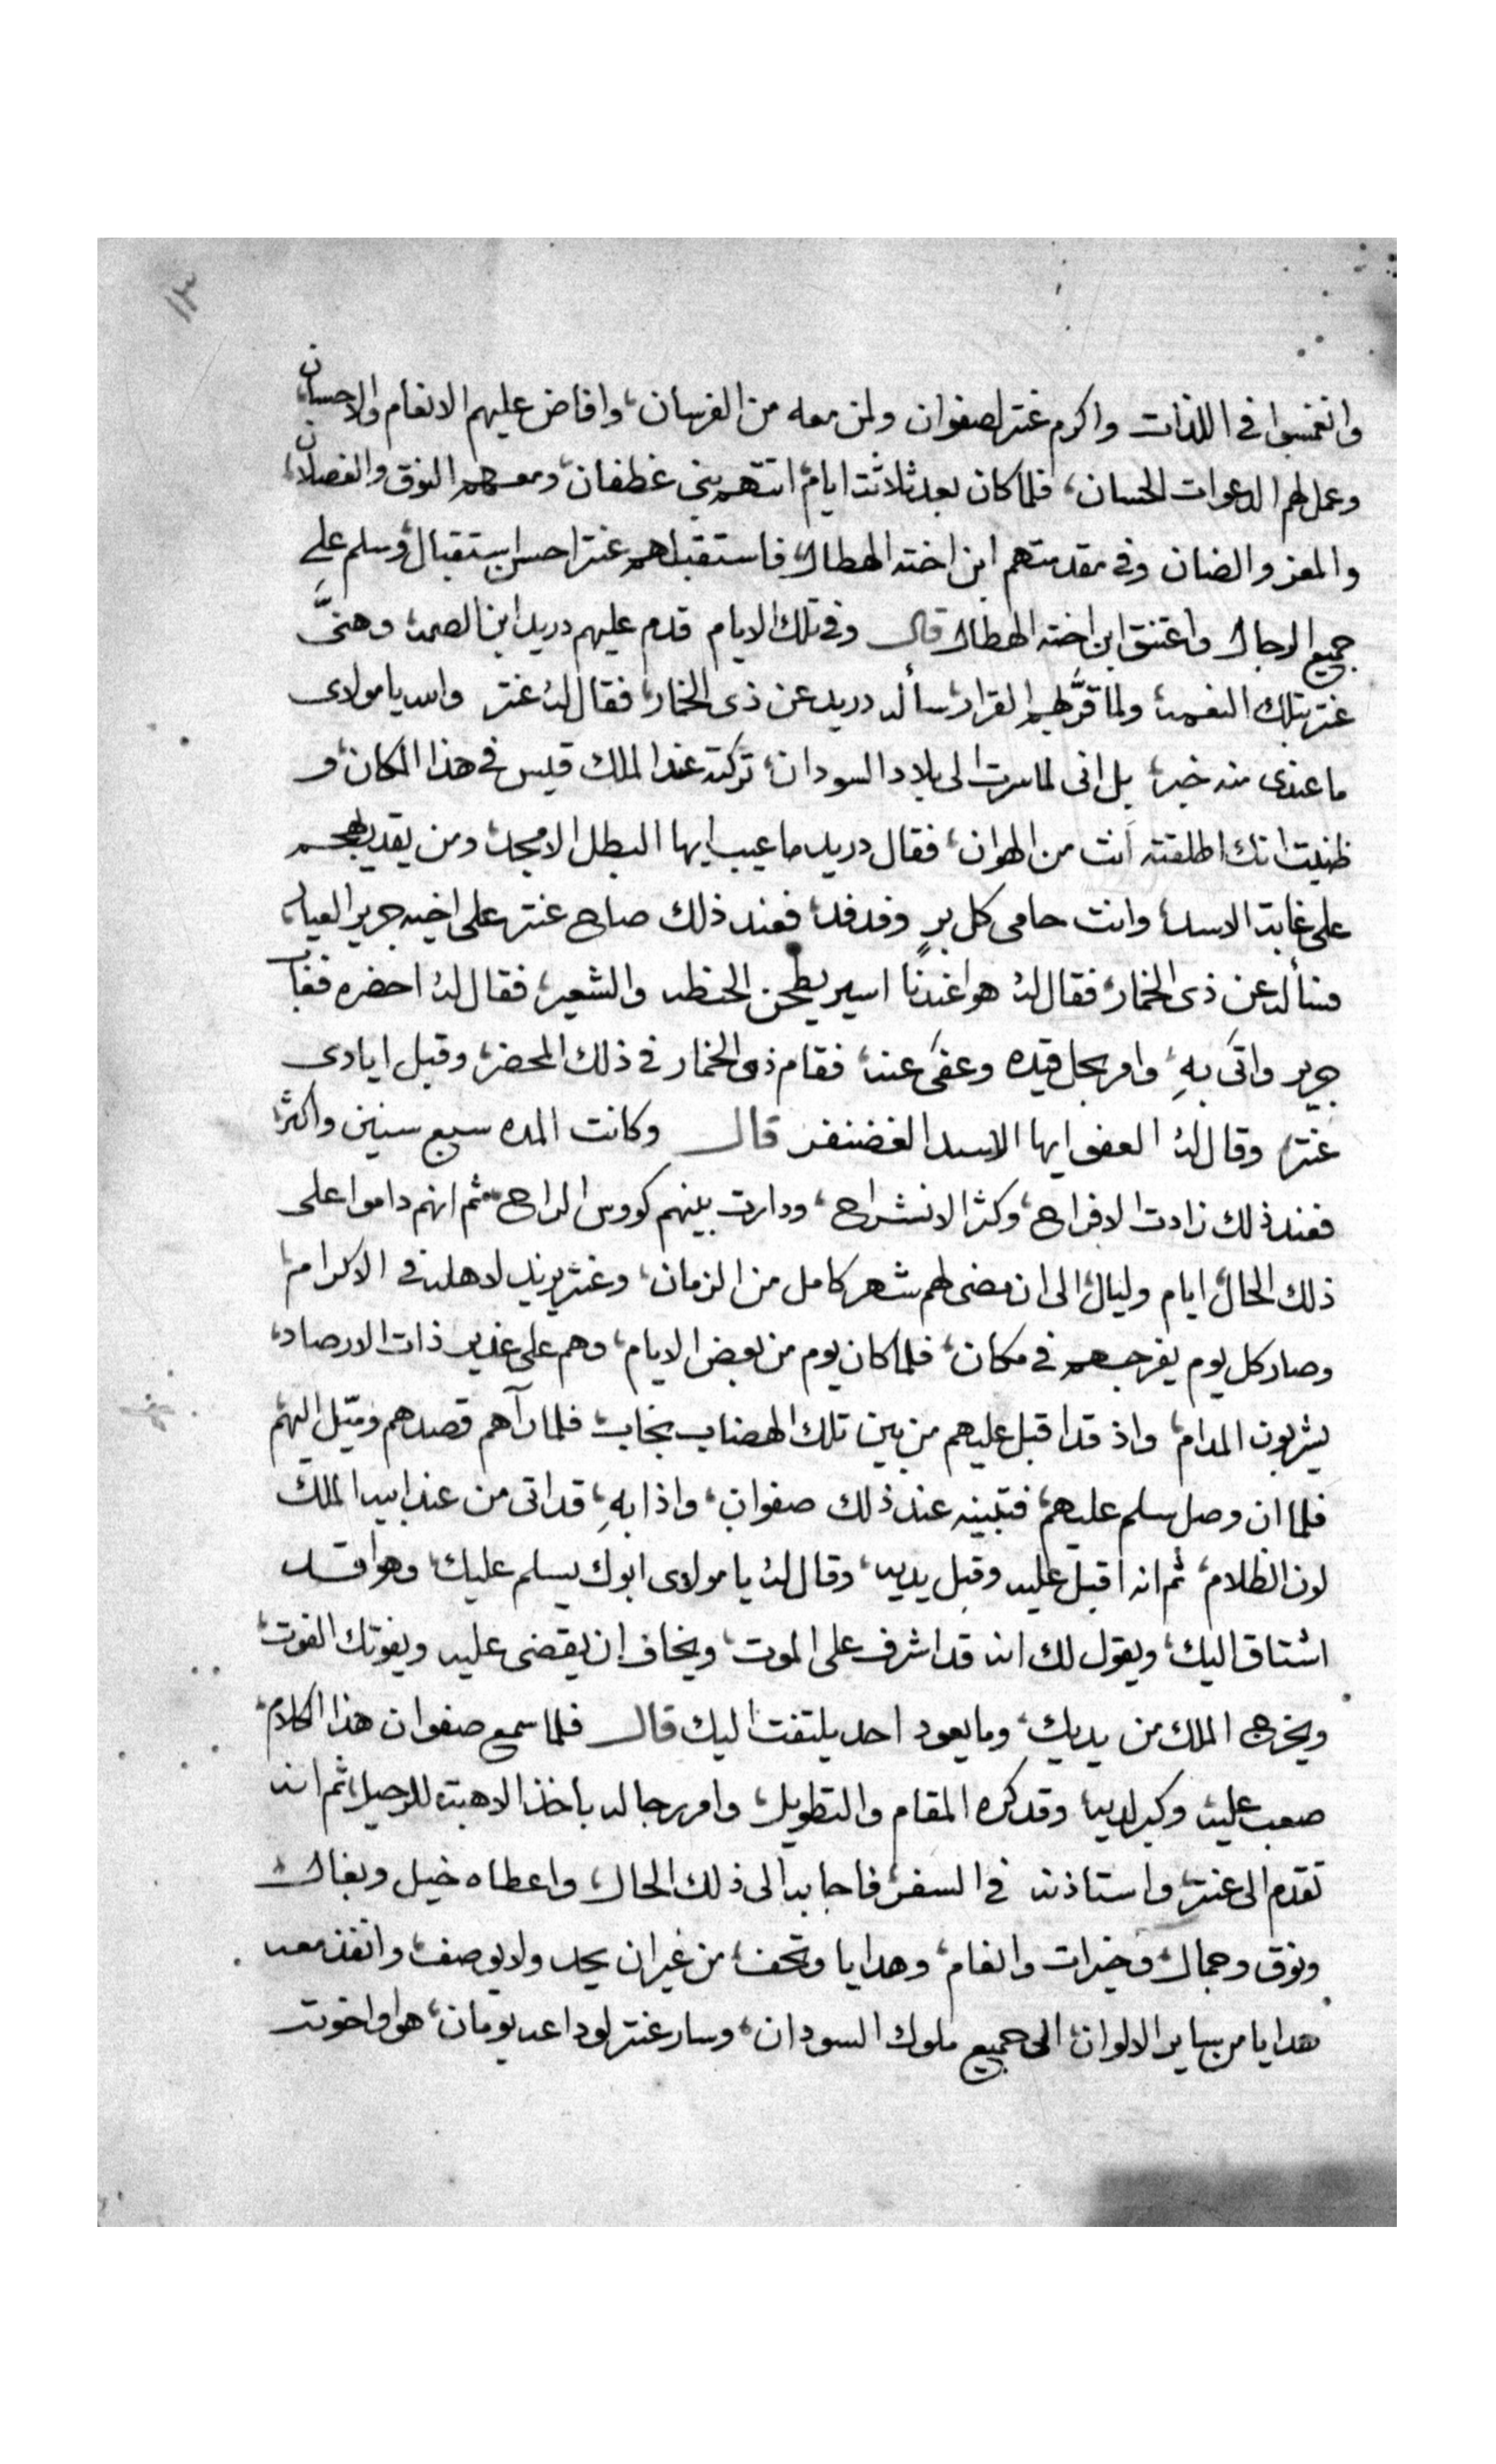 ١٣
وانغمسوا في اللذات واكرم عنتر لصفوان ولمن معه من الفرسان، وافاض عليهم الانعام والاحسان
وعمل لهم الدعوات الحسان، فلما كان بعد ثلاثة ايام، اتتهم بني غطفان، ومعهم النوق والفصلان،
والمعز والضان وفي مقدمتهم ابن اخته الهطال، فاستقبلهم عنتر احسن استقبال، وسلم على
جميع الرجال واعتنق ابن اخته الهطال قال وفي تلك الايام قدم عليهم دريد ابن الصمة، وهنَّى
عنتر بتلك النعمة، ولما قرَّ لهم القرار، سأله دريد عن ذى الخمار، فقال لهُ عنتر والله يا مولاى
ما عندى منه خبر، بل انى لما سرت الى بلاد السودان، تركته عند الملك قيس في هذا المكان، و
ظنيت انك اطلقته انت من الهوان، فقال دريد ما عيب ايها البطل الامجد، ومن يقدر يهجم
على غابة الاسد، وانت حامى كل برٍ وفدفد، فعند ذلك صاح عنتر على اخيه جرير العيار،
فسأله عن ذى الخمار، فقال لهُ هوا عندنا اسير يطحن الحنظل والشعير، فقال لهُ احضره فغاب
جرير واتى بهِ، وامر بحل قيده وعفى عنه، فقام ذو الخمار في ذلك المحضر، وقبل ايادى
عنتر، وقال لهُ العفو ايها الاسد الغضنفر قال وكانت المده سبع سنين واكثر،
فعند ذلك زادت الافراح، وكثر الانشراح، ودارت بينهم كووس الراح، ثم انهم داموا على
ذلك الحال، ايام وليال، الى ان مضى لهم شهر كامل من الزمان، وعنتر يزيد لاهله في الاكرام،
وصار كل يوم يفرجهم في مكان، فلما كان يوم من بعض الايام، وهم على غدير ذات الارصاد،
يشربون المدام، واذ قد اقبل عليهم من بين تلك الهضاب نجاب، فلما رآهم قصدهم وميّل اليهم
فلما ان وصل سلم عليهم، فتبينه عند ذلك صفوان، واذا بهِ، قد اتى من عند ابيه الملك
لون الظلام، ثم انه اقبل عليه وقبل يديه، وقال لهُ يا مولاى ابوك يسلم عليك، وهوا قد
اشتاق اليك، ويقول لك انه قد اشرف على الموت، ويخاف ان يقضى عليه ويفوتك الفوت،
ويخرج الملك من يديك، وما يعود احد يلتفت اليك قال فلما سمع صفوان هذا الكلام،
صعب عليه وكبر لديه، وقد كره المقام والتطويل، وامر رجاله باخذ الاهبة للرحيل، ثم انه
تقدم الى عنتر، واستاذنه في السفر، فاجابه الى ذلك الحال، واعطاه خيل وبغال،
ونوق وجمال، وخيرات وانعام، وهدايا وتحف، من غير ان يحد ولا يوصف، وانفذ معه
هدايا من ساير الالوان، الى جميع ملوك السودان، وسار عنتر لوداعه يومان، هوا واخوته